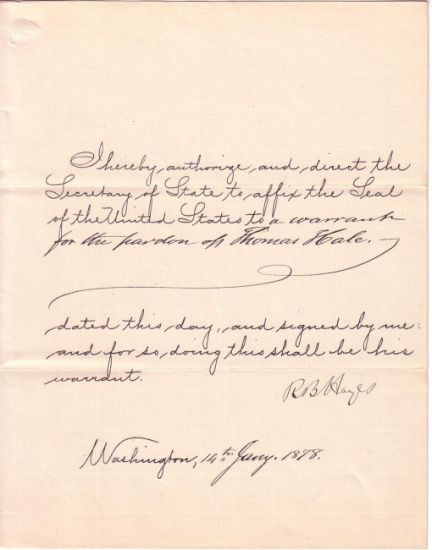 I hereby authorize and direct the
Secretary of State to affix the Seal
of the United States to a warrant
for the pardon of Thomas Hale.
dated this day, and signed by me:
and for so doing this shall be his
warrant.
R B Hayes
Washington, 14th Jany. 1878.